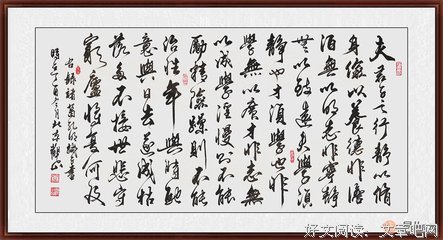 夫君子之行静以修
身儉以養德非澹
泊無以明志非寧静
無以致遠夫學須
静也才須學也非
學無以廣才非志無
以成學淫慢則不能
勵精險躁則不能
治性年與時馳
意與日去遂成枯
落多不接世悲守
窮廬將復何及
諸葛亮誡子書
好文阅读、文章吧网